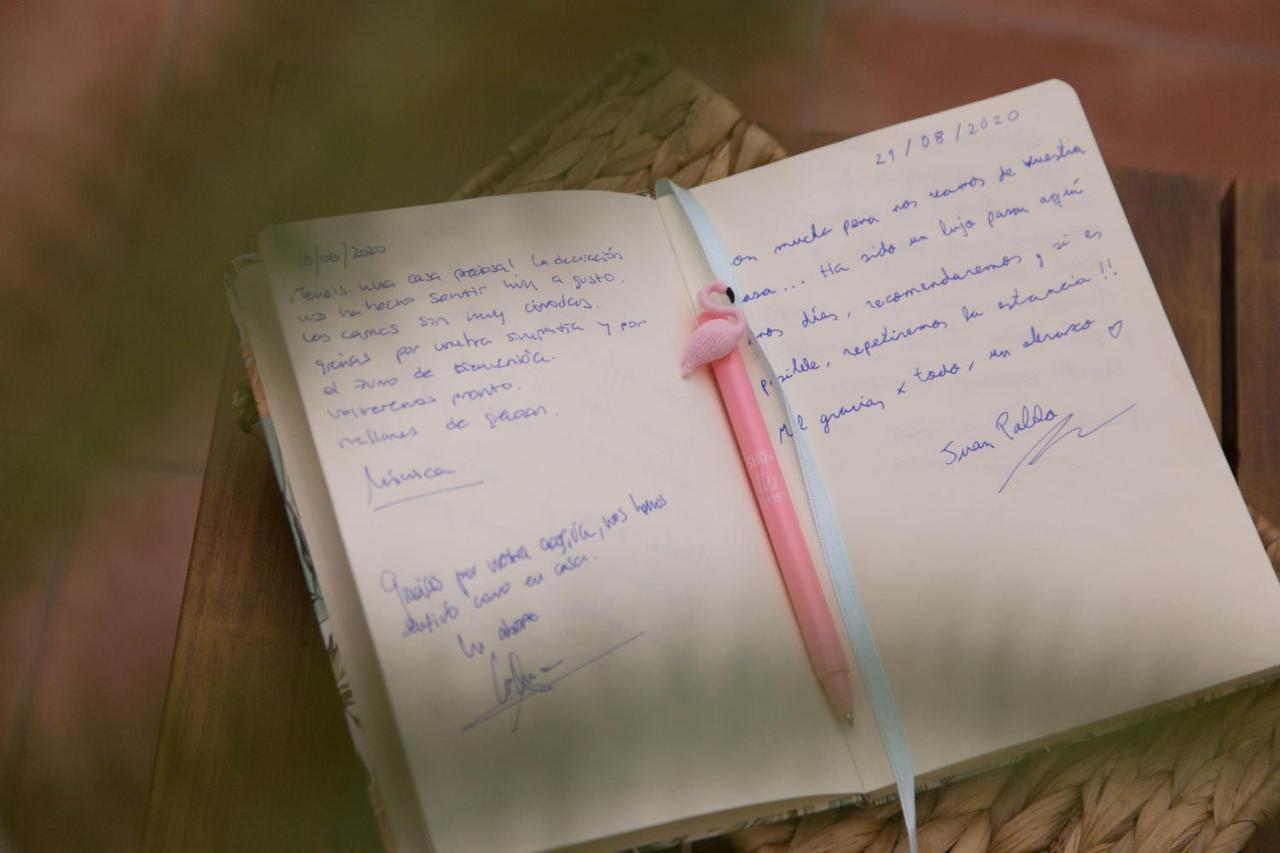 18/08/2020
¡Tenéis una casa preciosa! La decoración
nos ha hecho sentir muy a gusto.
Las camas son muy cómodas.
gracias por vuestra simpatía y por
el zumo de bienvenida.
volveremos pronto.
millones de gracias.
Mónica
Gracias por vuestra acogida, nos hemos
sentido como en casa.
Un abrazo
21/08/2020
on mucha pena nos vamos de vuestra
asa... Ha sido un lujo pasar aquí
nos días, recomendaremos y si es
posible, repetiremos la estancia !!
Mil gracias x todo, un abrazo ♡
Juan Pablo